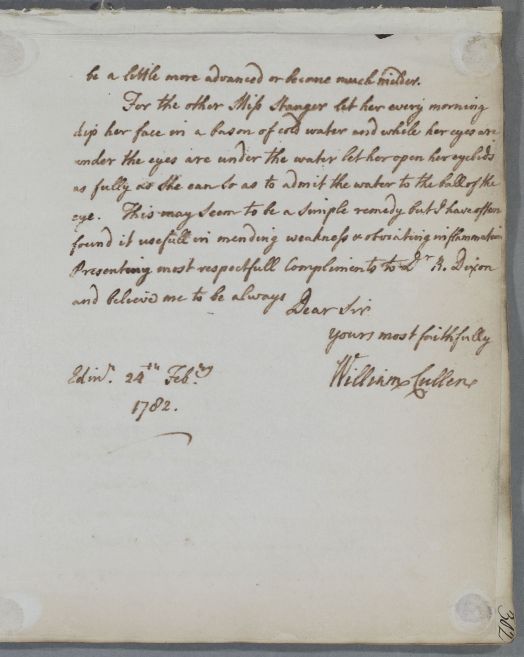 be a little more advanced or become much milder.
For the other Miss Stanger let her every morning
dip her face in a bason of cold water and while her eyes are
under the eyes are under the water let her open her eyelids
as fully as she can so as to admit the water to the ball of the
eye. This may seem to be a simple remedy but I have often
found it usefull in mending weakness & obviating inflammation
Presenting most respectfull Compliments to Dr R. Dixon
and believe me to be always Dear Sir
yours most faithfully
Edinr. 24th Febry
William Cullen
1782.
302